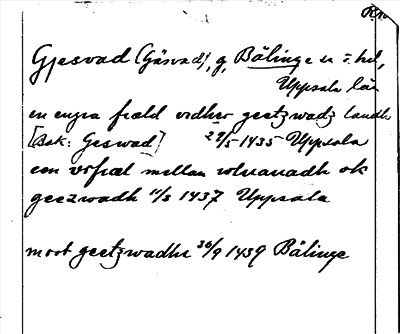 Rn
Gjesvad (Gäsvad), g, Bälinge sn o. hd,
Uppsala län
en engia fiæld vidher geetzwadz landh
[Bak: Geswad] 29/5 1435 Uppsala
een vrfiæl mellan rolunadh ok
geezwadh 11/3 1437 Uppsala
moot geetzwadhe 30/9 1439 Bälinge